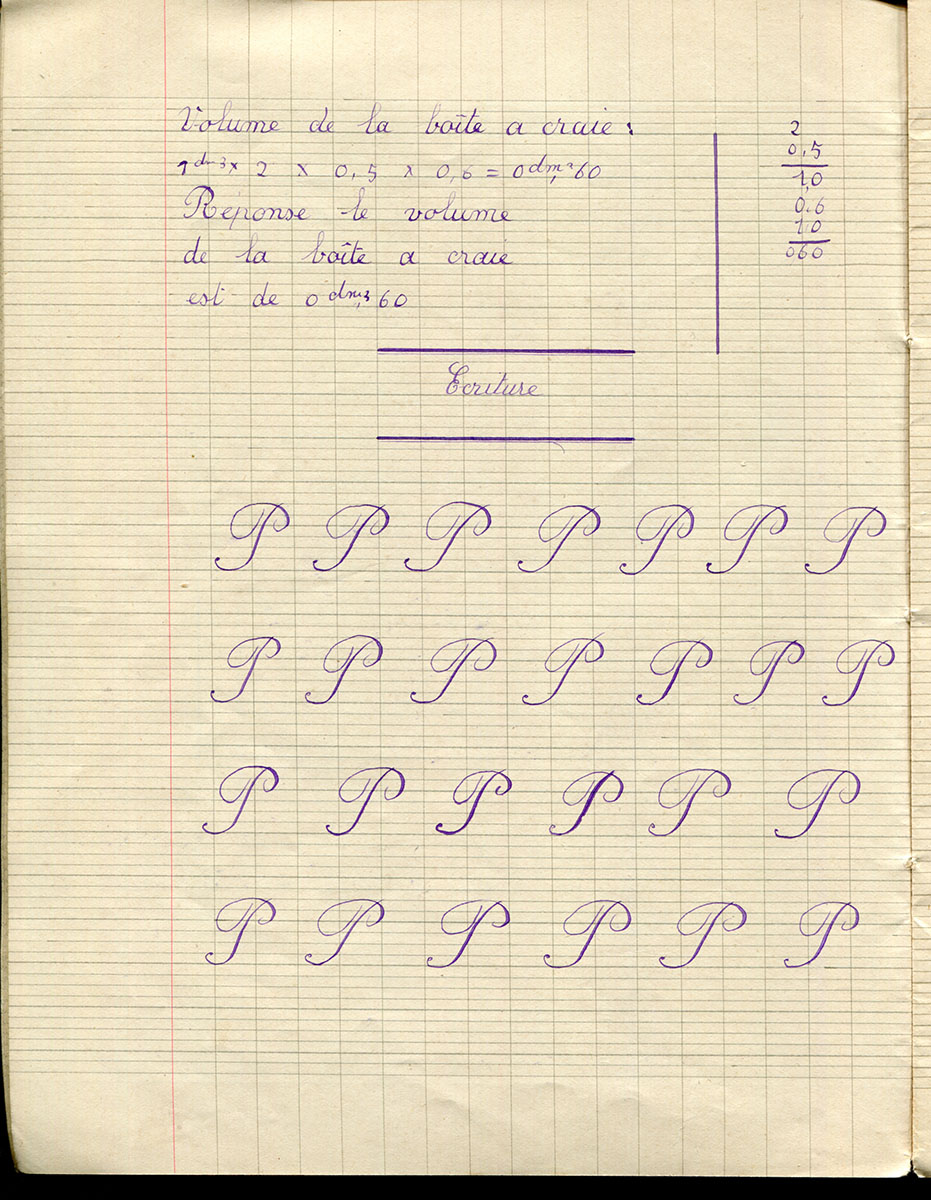 Volume de la boîte a craie :
1 dm3 x 2 x 0,5 x 0,6 = 0 dm3, 60
Réponse le volume
de la boîte a craie
est de 0 dm3, 60
2
0,5
1,0
0.6
1,0
060
Ecriture
P P P P P P P
P P P P P P P
P P P P P P
P P P P P P